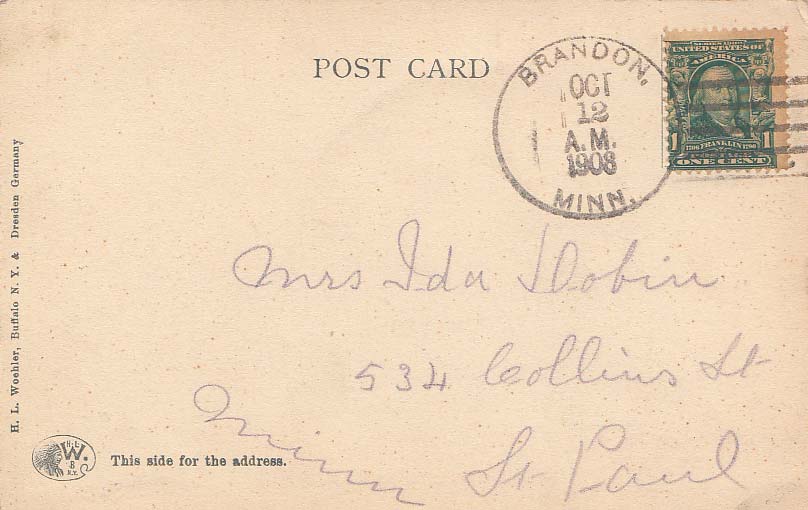 POST CARD
BRANDON,
OCT
12
A.M.
1908
MINN.
UNITED STATES OF
AMERICA
1
1706 FRANKLIN 1790
1
POSTAGE
ONE CENT
Mrs Ida Dobin
534 Collins St
St. Paul
Minn
H. L. Woehler, Buffalo N. Y. & Dresden Germany
H.L.
W.
B
N.Y.
This side for the address.